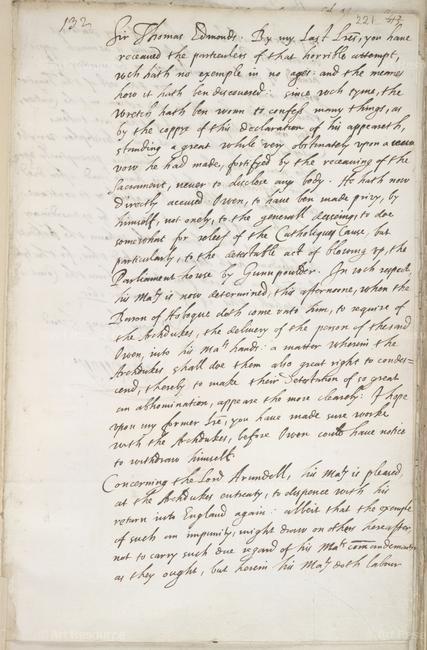 132
221
Sir Thomas Edmonds. By my Last Lres, you have
receaued the particulers of that horrible attempt,
wch hath no exemple in no ages: and the meanes
how it hath ben discouered: since wch tyme, the
wretch hath ben wonn to confess many things, as
by the coppye of this declaration of his appeareth,
standing a great while very obstinately upon a
vow he had made, fortifyed by the receauing of the
Sacrament, neuer to disclose any body. He hath now
directly accused Owen, to haue ben made privy, by
himself, not onely, to the generall desseing, to doe
somewhat for releef of the Catholiques Cause, but
particularly, to the detestable act of blowing up, the
Parliament house by Gunnpowder. In wch respect,
his Maty is now determined, this afternoone, when the
Baron of Hoboque doth come unto him, to require of
the Archdukes, the deliuery of the person of the said
Owen, into his Mats hands: a matter wherein the
Archdukes shall doe them also great right to condes=
cend, thereby to make their Detestation of so great
an abhomination, appeare the more clearely: I hope
upon my former Lre, you haue made sure worke
with the Archdukes, before Owen could haue notice
to withdraw himself.
Concerning the Lord Arundell, his Maty is pleased,
at the Archdukes entreaty, to dispence with his
return into England again: albeit that the exemple
of such an impunity, might draw on others hereafter,
not to carry such due regard of his Mats comandements
as they ought, but herein his Maty doth labour